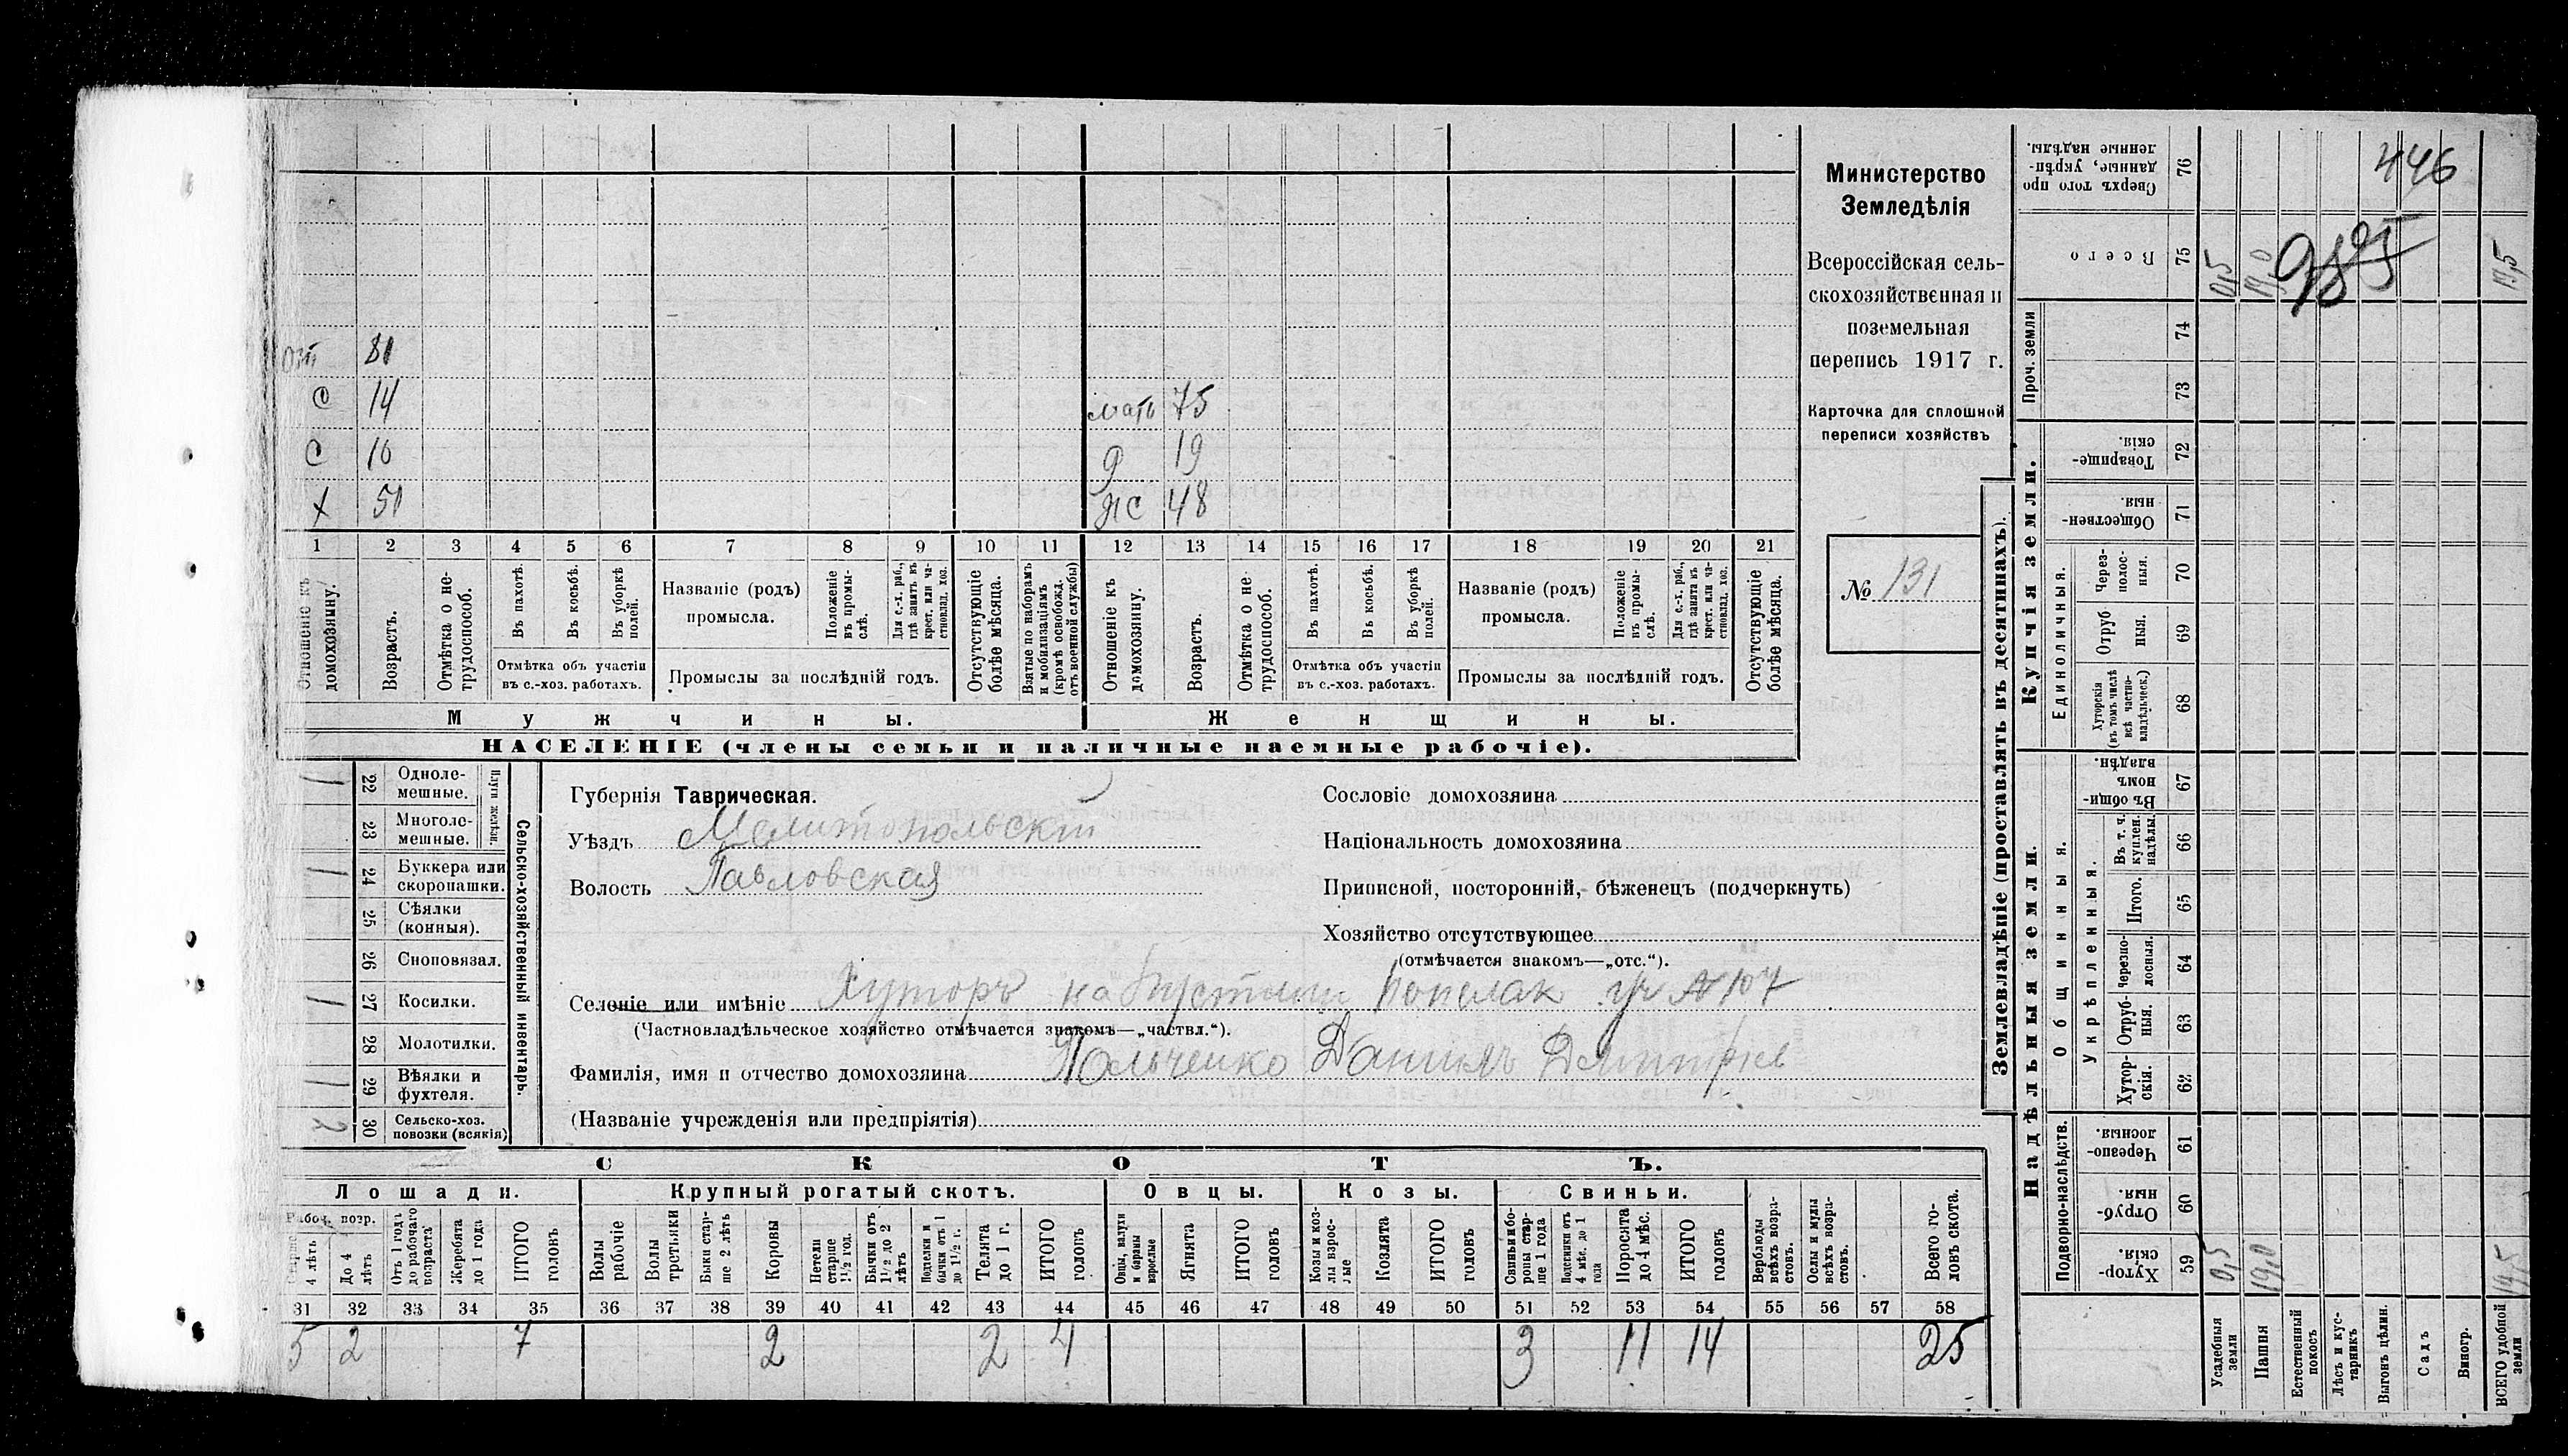 Министерство
Земледѣлія
Всероссійская сель-
скохозяйственная и
поземельная
перепись 1917 г.
Карточка для сплошной
переписи хозяйствъ
№ 131
446
от 81
с 14
мать 75
с 16
д 19
х 51
жс 48
1 2 3 4 5 6 7 8 9 10 11 12 13 14 15 16 17 18 19 20 21
Отношеніе къ домохозяину.
Возрастъ.
Отмѣтка о не-трудоспособ.
Въ пахотѣ.
Въ косьбѣ.
Въ уборкѣ полей.
Отмѣтка объ участіи въ с.-хоз. работахъ.
Названіе (родъ) промысла.
Положеніе въ промы-слѣ.
Для с.-х. раб., гдѣ занятъ въ крест. или ча-стновлад. хоз.
Промыслы за послѣдній годъ.
Отсутствующіе болѣе мѣсяца.
Взятые по наборамъ и мобилизаціямъ (кромѣ освобожд. отъ военной службы)
Отношеніе къ домохозяину.
Возрастъ.
Отмѣтка о не-трудоспособ.
Въ пахотѣ.
Въ косьбѣ.
Въ уборкѣ полей.
Отмѣтка объ участіи въ с.-хоз. работахъ.
Названіе (родъ) промысла.
Положеніе въ промы-слѣ.
Для с.-х. раб., гдѣ занята въ крест. или ча-стновлад. хоз.
Промыслы за послѣдній годъ.
Отсутствующіе болѣе мѣсяца.
Мужчины.
Женщины.
НАСЕЛЕНІЕ (члены семьи и наличные наемные рабочіе).
Сельско-хозяйственный инвентарь.
Плуги желѣзн.
22 Одноле-мешные. 1
23 Многоле-мешные.
24 Буккера или скоропашки. 1
25 Сѣялки (конныя).
26 Сноповязал.
27 Косилки. 1
28 Молотилки.
29 Вѣялки и фухтеля. 1
30 Сельско-хоз. повозки (всякія) 2
Губернія Таврическая.
Уѣздъ Мелитопольскій
Волость Павловская
Сословіе домохозяина
Національность домохозяина
Приписной, посторонній, бѣженецъ (подчеркнуть)
Хозяйство отсутствующее
(отмѣчается знакомъ—„отс.“).
Селеніе или имѣніе Хуторъ на уч №107
(Частновладѣльческое хозяйство отмѣчается знакомъ—„частвл.“).
Фамилія, имя и отчество домохозяина Пальченко Данилъ Дмитріев
(Названіе учрежденія или предпріятія)
СКОТЪ.
Лошади.
Рабоч. возр.
Старше 4 лѣтъ
До 4 лѣтъ
Отъ 1 годъ до рабочаго возраста
Жеребята до 1 года
ИТОГО головъ
Крупный рогатый скотъ.
Волы рабочіе
Волы третьяки
Быки стар-ше 2 лѣтъ
Коровы
Нетели старше 1½ год.
Бычки отъ 1½ до 2 лѣтъ
Подтелки и бычки отъ 1 до 1½ г.
Телята до 1 г.
ИТОГО головъ
Овцы.
Овцы, валухи и бараны взрослые
Ягнята
ИТОГО головъ
Козы.
Козы и коз-лы взрос-лые
Козлята
ИТОГО головъ
Свиньи.
Свиньи и бо-ровы стар-ше 1 года
Подсвинки отъ 4 мѣс. до 1 года
Поросята до 4 мѣс.
ИТОГО головъ
Верблюды всѣхъ возра-стовъ.
Ослы и мулы всѣхъ возра-стовъ.
Всего го-ловъ скота.
31 32 33 34 35 36 37 38 39 40 41 42 43 44 45 46 47 48 49 50 51 52 53 54 55 56 57 58
5 2 7 2 2 4 3 11 14 25
Землевладѣніе (проставлять въ десятинахъ).
Надѣльныя земли.
Купчія земли.
Проч. земли
Сверхъ того про-данные, укрѣп-ленные надѣлы. 76
Всего 75 0,5 19,0 19,5
74
73
Товарище-скія. 72
Обществен-ныя. 71
Единоличныя.
Через-полос-ныя. 70
Отруб-ныя. 69
Хуторскія (въ томъ числѣ всѣ частно-владѣльческ.) 68
Общинныя.
Въ общи-номъ владѣн. 67
Укрѣпленныя.
Въ т. ч. куплен. надѣлы. 66
Итого. 65
Черезпо-лосныя. 64
Отруб-ныя. 63
Хутор-скія. 62
Подворно-наслѣдств.
Черезпо-лосныя. 61
Отруб-ныя. 60
Хутор-скія. 59 0,5 19,0 19,5
Усадебныя земли
Пашня
Естественный покосъ
Лѣсъ и кус-тарникъ
Выгонъ цѣлин.
Садъ
Виногр.
ВСЕГО удобной земли